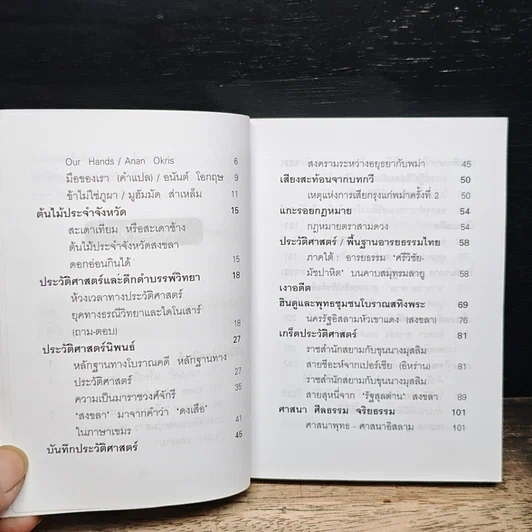 Our Hands / Anan Okris 6
มือของเรา (คำแปล) / อนันต์ โอกฤษ 9
ข้าไม่ใช่ภูผา / มูฮัมมัด ส่าเหล็ม 11
ต้นไม้ประจำจังหวัด 15
สะเดาเทียม หรือสะเดาช้าง
ต้นไม้ประจำจังหวัดสงขลา
ดอกอ่อนกินได้ 15
ประวัติศาสตร์และดึกดำบรรพ์วิทยา 18
ห้วงเวลาทางประวัติศาสตร์
ยุคทางธรณีวิทยาและไดโนเสาร์
(ถาม-ตอบ) 18
ประวัติศาสตร์นิพนธ์ 27
หลักฐานทางโบราณคดี หลักฐานทาง
ประวัติศาสตร์ 27
ความเป็นมาราชวงศ์จักรี 35
"สงขลา" มาจากคำว่า "ดงเสือ"
ในภาษาเขมร 41
บันทึกประวัติศาสตร์ 45
สงครามระหว่างอยุธยากับพม่า 45
เสียงสะท้อนจากบทกวี 50
เหตุแห่งการเสียกรุงแก่พม่าครั้งที่ 2 50
แกะรอยกฎหมาย 54
กฎหมายตราสามดวง 54
ประวัติศาสตร์ / พื้นฐานอารยธรรมไทย 58
ภาคใต้ : อารยธรรม "ศรีวิชัย-
มัชปาหิต" บนคาบสมุทรมลายู 58
เงาอดีต
ฮินดูและพุทธชุมชนโบราณสทิงพระ 69
นครรัฐอิสลามหัวเขาแดง (สงขลา) 76
เกร็ดประวัติศาสตร์ 81
ราชสำนักสยามกับขุนนางมุสลิม
สายชีอะห์จากเปอร์เซีย (อิหร่าน) 81
ราชสำนักสยามกับขุนนางมุสลิม
สายสุหนี่จาก "รัฐสุลต่าน" สงขลา 89
ศาสนา ศีลธรรม จริยธรรม 101
ศาสนาพุทธ - ศาสนาอิสลาม 101